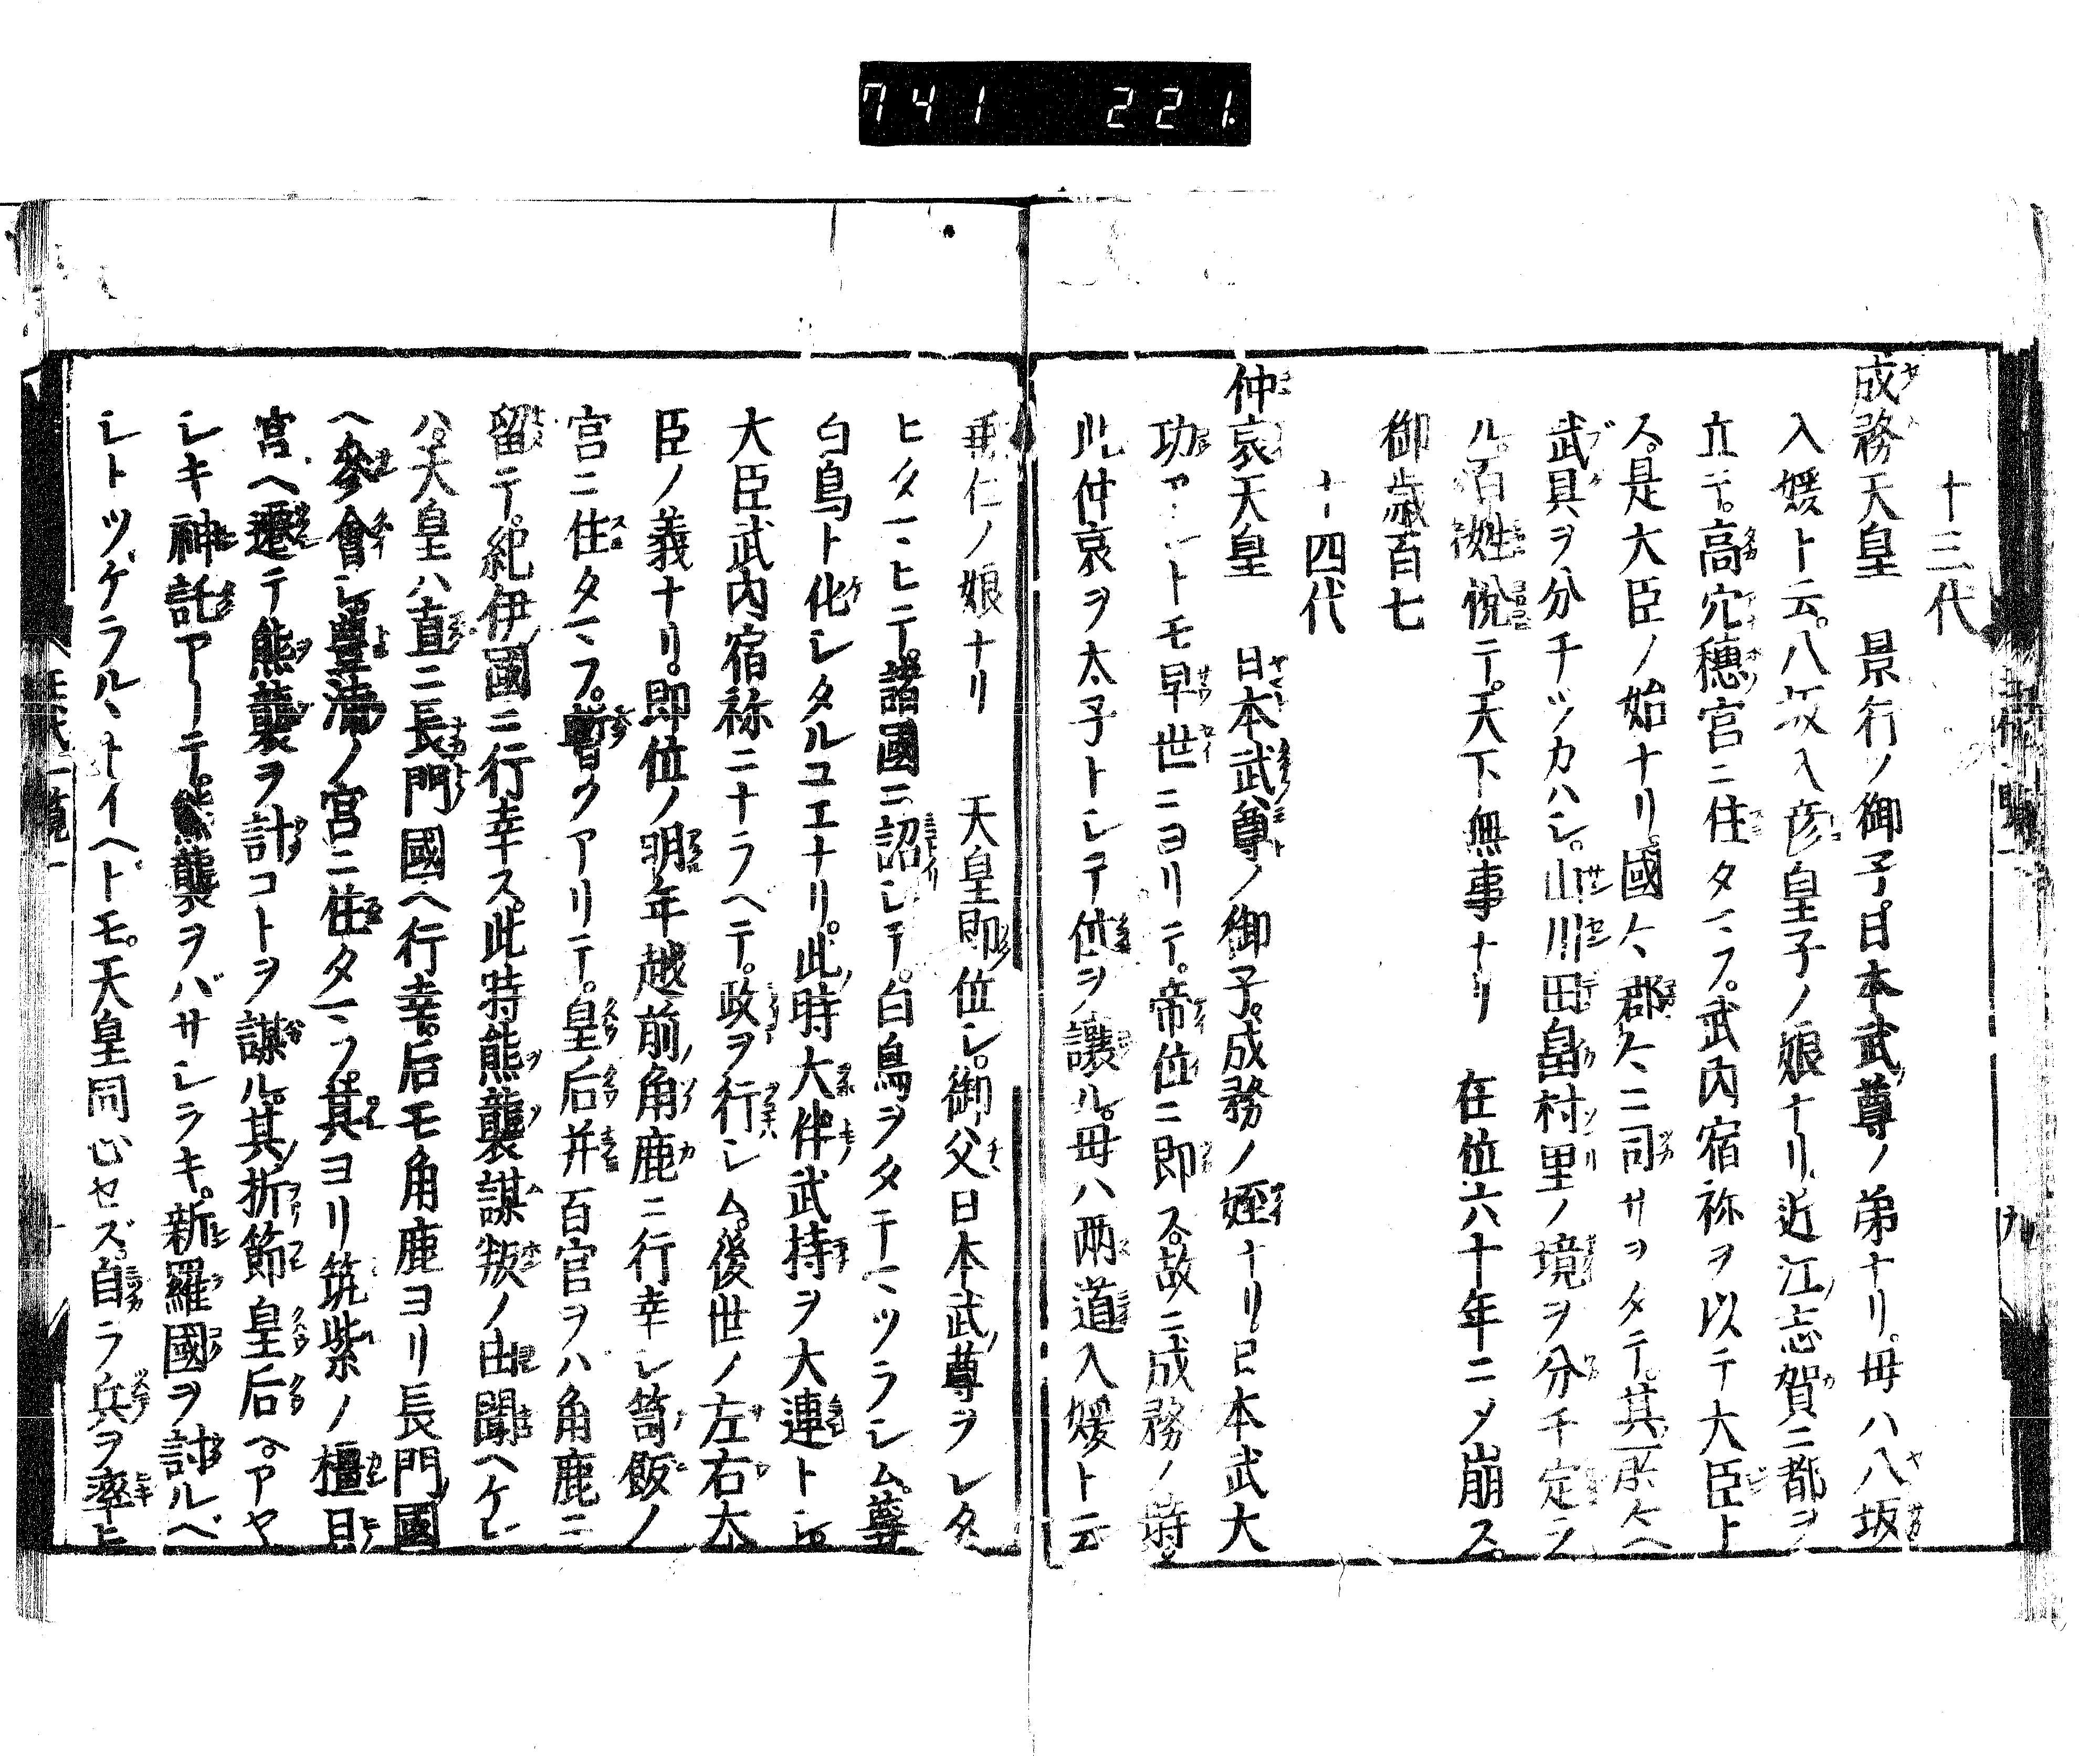 741 221.
十三代
成務天皇 景行ノ御子。日本武尊ノ弟ナリ。母ハ八坂
入媛ト云。八坂入彦皇子ノ娘ナリ。近江志賀ニ都ヲ
立テ。高穴穂宮ニ住タマフ。武内宿祢ヲ以テ大臣ト
ス。是大臣ノ始ナリ。國々郡々ニ司サヲタテ。其所々ヘ
武具ヲ分チツカハシ。山川田畠村里ノ境ヲ分チ定シ
ル。百姓悦テ。天下無事ナリ 在位六十年ニメ崩ス。
御歳百七
十四代
仲哀天皇 日本武尊ノ御子。成務ノ姪ナリ。日本武大
功アレトモ早世ニヨリテ。帝位ニ即ス。故ニ成務ノ時。
此仲哀ヲ太子トシテ位ヲ讓ル。母ハ兩道入媛ト云
垂仁ノ娘ナリ 天皇即位シ。御父日本武尊ヲシタ
ヒタマヒテ。諸國ニ詔シテ。白鳥ヲタテマツラシム。尊
白鳥ト化シタルユエナリ。此時大伴武持ヲ大連トシ
大臣武内宿祢ニナラヘテ。政ヲ行シム。後世ノ左右大
臣ノ義ナリ。即位ノ明年越前ノ角鹿ニ行幸シ笥飯ノ
宮ニ住タマフ。暫クアリテ。皇后并百官ヲハ角鹿ニ
留テ。紀伊國ニ行幸ス。此時熊襲謀叛ノ由聞ヘケレ
ハ。天皇ハ直ニ長門國ヘ行幸。后モ角鹿ヨリ長門國
ヘ參會シ豊浦ノ宮ニ住タマフ。其ヨリ筑紫ノ橿日
宮ヘ遷テ熊襲ヲ討コトヲ謀ル。其折節皇后ヘ。アヤ
シキ神託アリテ。熊襲ヲバサシヲキ。新羅國ヲ討ルベ
シトツゲラル、トイヘトモ。天皇同心セズ。自ラ兵ヲ率ヒ